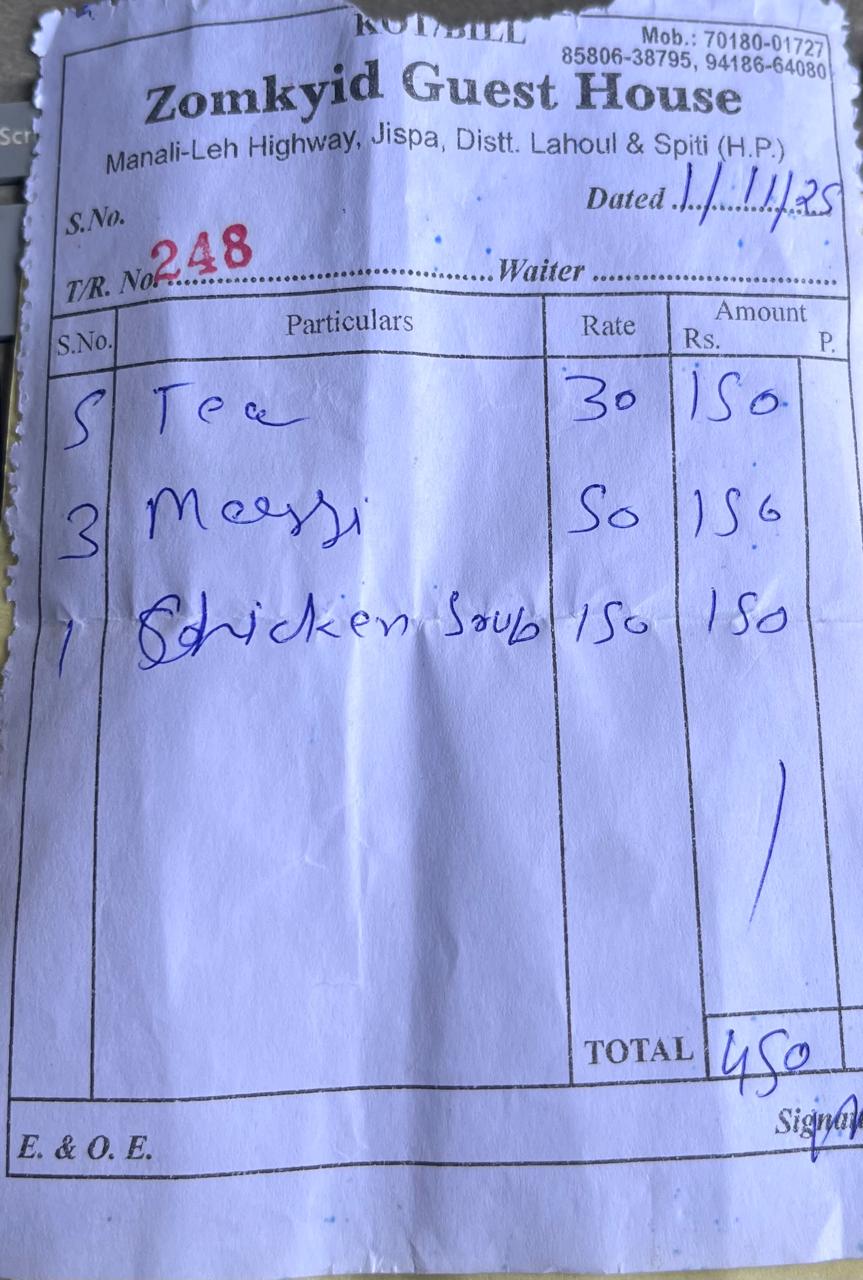 KOT/BILL
Mob.: 70180-01727
85806-38795, 94186-64080
Zomkyid Guest House
Manali-Leh Highway, Jispa, Distt. Lahoul & Spiti (H.P.)
S.No. Dated 1/11/25
T/R. No. 248 Waiter
S.No. Particulars Rate Amount Rs. P.
5 Tea 30 150
3 Maggi 50 150
1 Chicken Soup 150 150
TOTAL 450
E. & O. E.